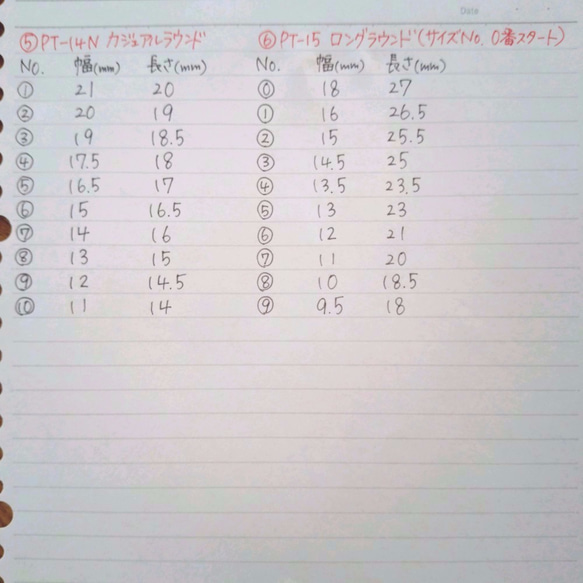 Date
⑤PT-14N カジュアルラウンド
NO. 幅(mm) 長さ(mm)
① 21 20
② 20 19
③ 19 18.5
④ 17.5 18
⑤ 16.5 17
⑥ 15 16.5
⑦ 14 16
⑧ 13 15
⑨ 12 14.5
⑩ 11 14
⑥PT-15 ロングラウンド(サイズNo. 0番スタート)
No. 幅(mm) 長さ(mm)
⓪ 18 27
① 16 26.5
② 15 25.5
③ 14.5 25
④ 13.5 23.5
⑤ 13 23
⑥ 12 21
⑦ 11 20
⑧ 10 18.5
⑨ 9.5 18